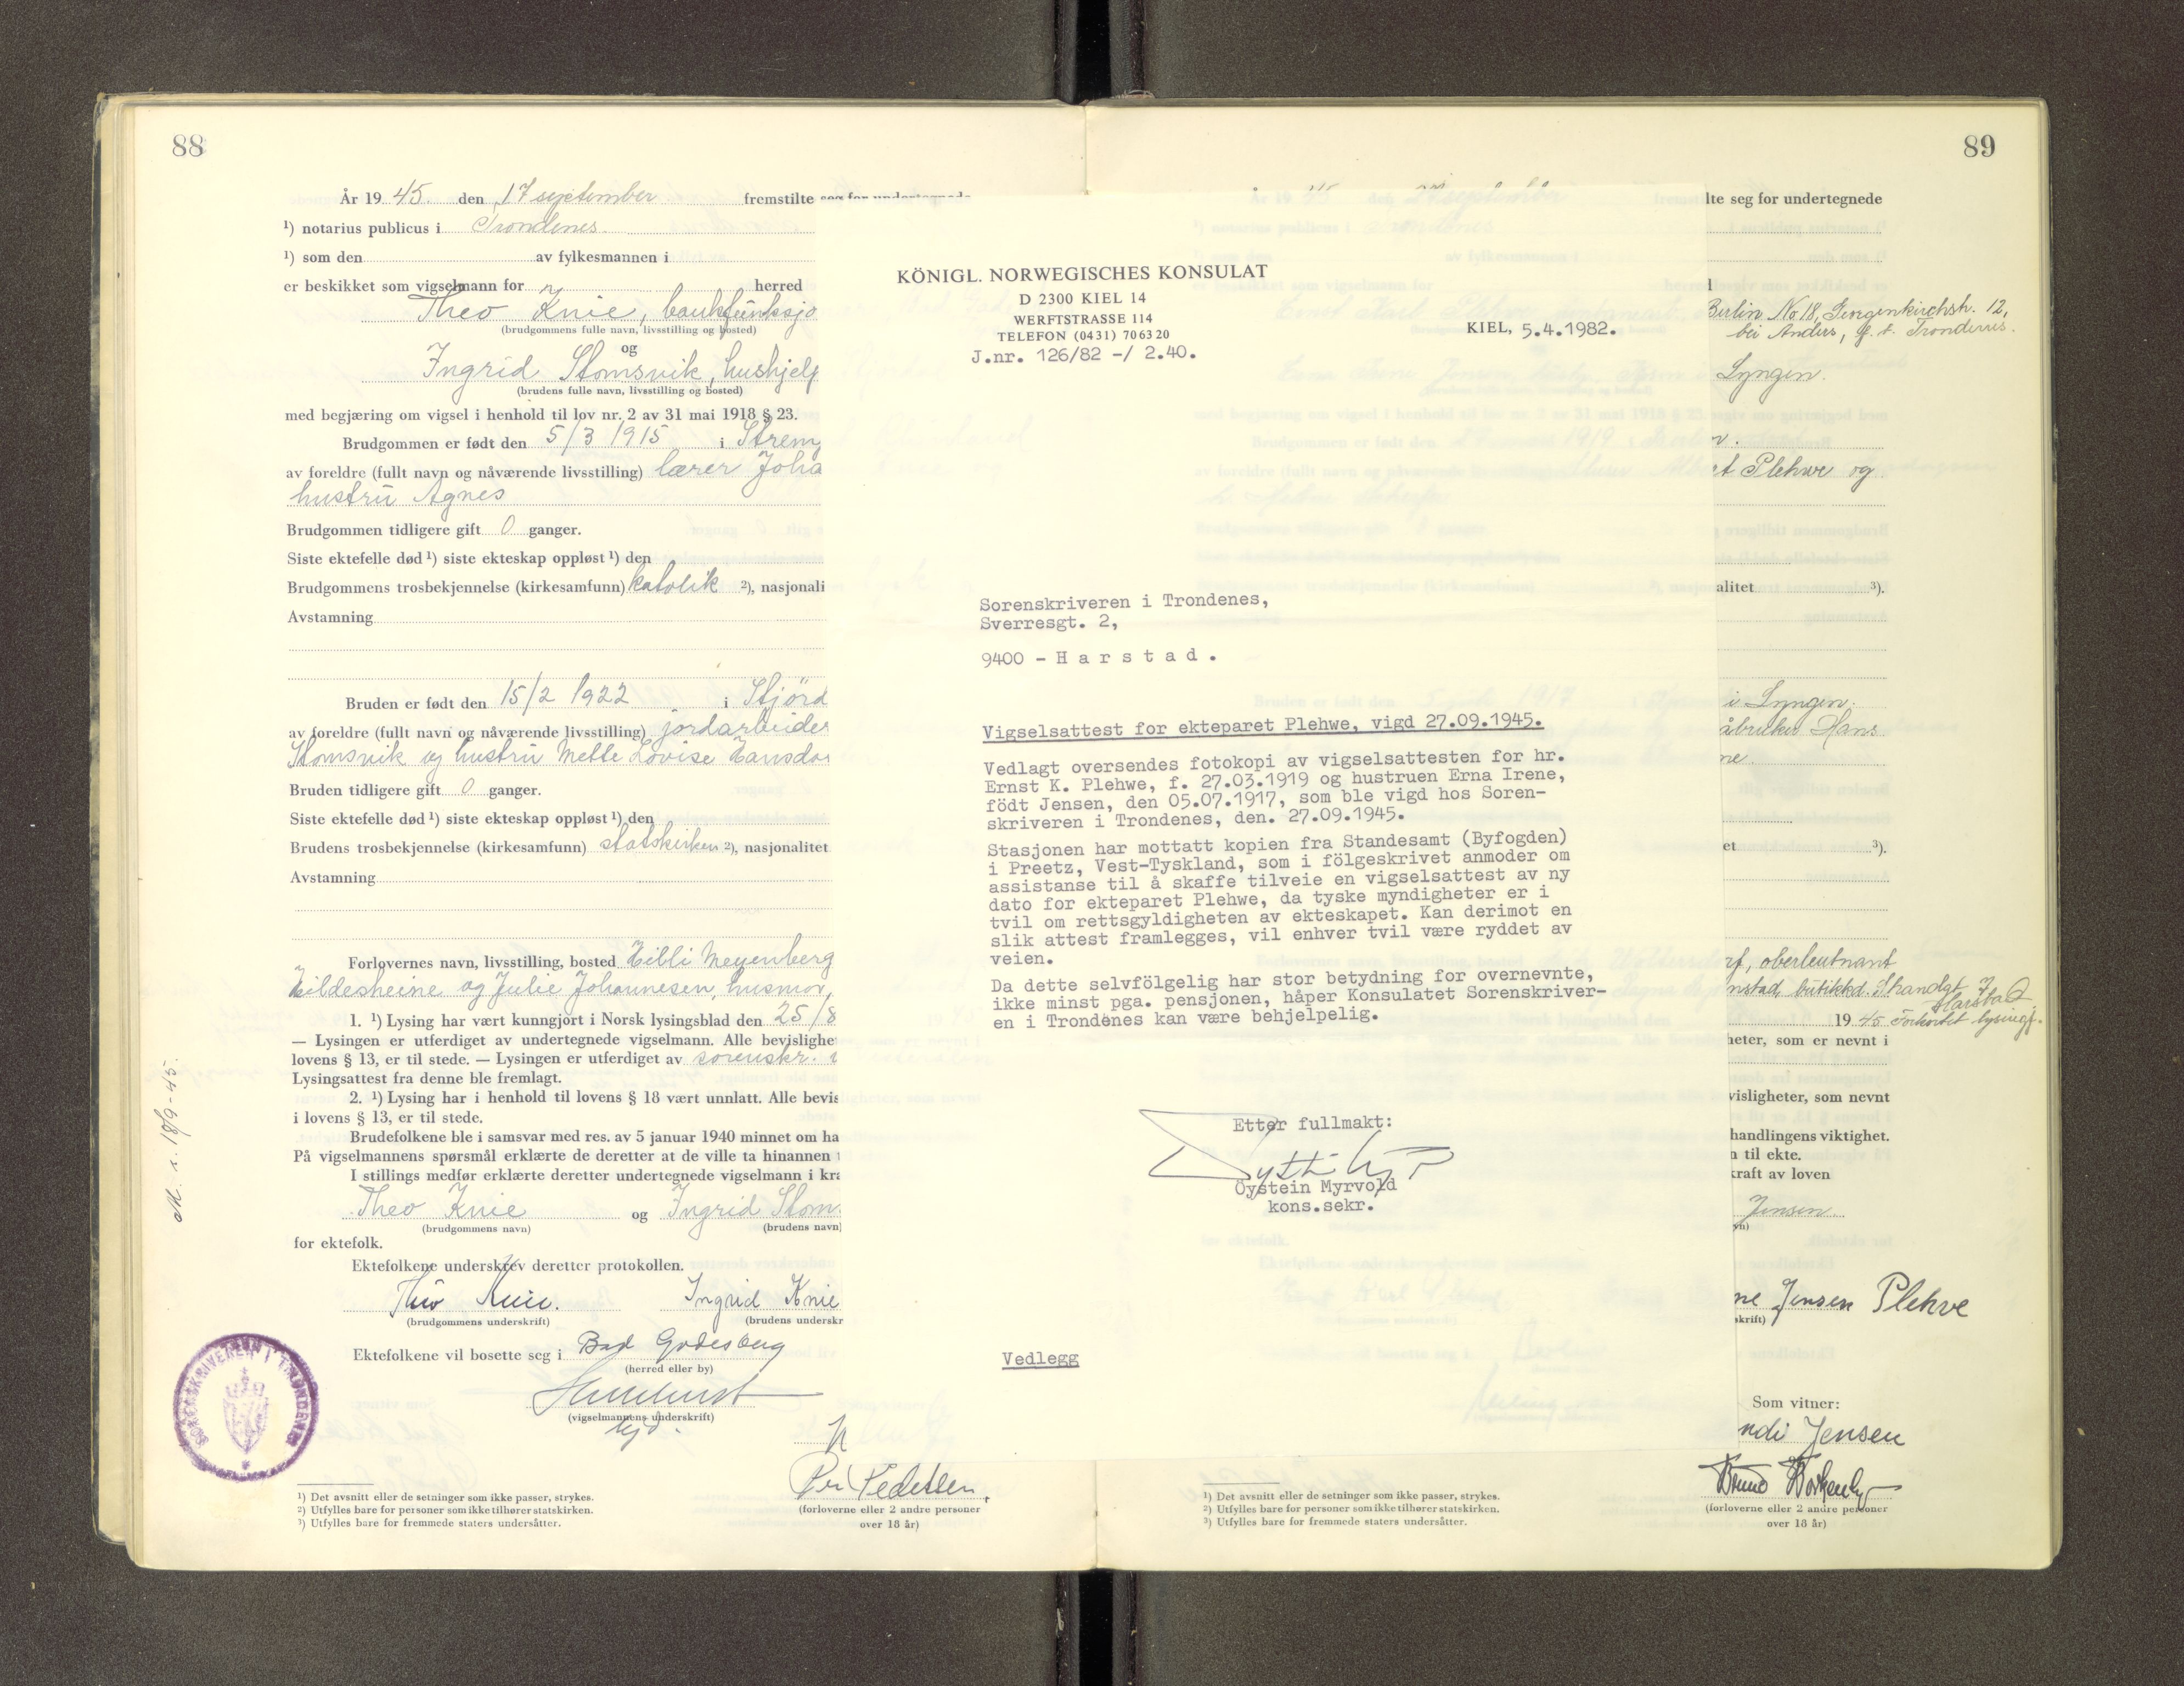 88
År 19 45. den 17 september fremstilte seg for undertegnede
1) notarius publicus i Trondenes.
1) som den av fylkesmannen i
er beskikket som vigselmann for herred
Theo Knie, bankfunksjo
(brudgommens fulle navn, livsstilling og bosted)
og
Ingrid Stomsvik, hushjelp
(brudens fulle navn, livsstilling og bosted)
med begjæring om vigsel i henhold til lov nr. 2 av 31 mai 1918 § 23.
Brudgommen er født den 5/3 1915 i Strem
av foreldre (fullt navn og nåværende livsstilling) lærer Joha
hustru Agnes
Brudgommen tidligere gift 0 ganger.
Siste ektefelle død 1) siste ekteskap oppløst 1) den
Brudgommens trosbekjennelse (kirkesamfunn) katolik 2), nasjonali
Avstamning
Bruden er født den 15/2 1922 i Stjörd
av foreldre (fullt navn og nåværende livsstilling) jordarbeider
Stomsvik og hustru Mette Lovise Hansda
Bruden tidligere gift 0 ganger.
Siste ektefelle død 1) siste ekteskap oppløst 1) den
Brudens trosbekjennelse (kirkesamfunn) statskirken 2), nasjonalitet
Avstamning
Forlovernes navn, livsstilling, bosted Hilli Meyenberg
Hildesheine og Julie Johannesen, husmor,
1. 1) Lysing har vært kunngjort i Norsk lysingsblad den 25/8
— Lysingen er utferdiget av undertegnede vigselmann. Alle bevislighe
lovens § 13, er til stede. — Lysingen er utferdiget av sorenskr. i
Lysingsattest fra denne ble fremlagt.
2. 1) Lysing har i henhold til lovens § 18 vært unnlatt. Alle bevis
i lovens § 13, er til stede.
Brudefolkene ble i samsvar med res. av 5 januar 1940 minnet om ha
På vigselmannens spørsmål erklærte de deretter at de ville ta hinannen
I stillings medfør erklærte deretter undertegnede vigselmann i kra
Theo Knie og Ingrid Stom
(brudgommens navn) (brudens navn)
for ektefolk.
Ektefolkene underskrev deretter protokollen.
Theo Knie. Ingrid Knie
(brudgommens underskrift) (brudens underskr
Ektefolkene vil bosette seg i Bad Godesberg
(herred eller by)
(vigselmannens underskrift)
Per Pedersen.
(forloverne eller 2 andre personer
over 18 år)
1) Det avsnitt eller de setninger som ikke passer, strykes.
2) Utfylles bare for personer som ikke tilhører statskirken.
3) Utfylles bare for fremmede staters undersåtter.
18/9-45.
SORENSKRIVEREN I TRONDENES
KÖNIGL. NORWEGISCHES KONSULAT
D 2300 KIEL 14
WERFTSTRASSE 114
TELEFON (0431) 706320
J.nr. 126/82 -/ 2.40.
KIEL, 5.4.1982.
Sorenskriveren i Trondenes,
Sverresgt. 2,
9400 - H a r s t a d .
Vigselsattest for ekteparet Plehwe, vigd 27.09.1945.
Vedlagt oversendes fotokopi av vigselsattesten for hr.
Ernst K. Plehwe, f. 27.03.1919 og hustruen Erna Irene,
födt Jensen, den 05.07.1917, som ble vigd hos Soren-
skriveren i Trondenes, den. 27.09.1945.
Stasjonen har mottatt kopien fra Standesamt (Byfogden)
i Preetz, Vest-Tyskland, som i fölgeskrivet anmoder om
assistanse til å skaffe tilveie en vigselsattest av ny
dato for ekteparet Plehwe, da tyske myndigheter er i
tvil om rettsgyldigheten av ekteskapet. Kan derimot en
slik attest framlegges, vil enhver tvil være ryddet av
veien.
Da dette selvfölgelig har stor betydning for overnevnte,
ikke minst pga. pensjonen, håper Konsulatet Sorenskriver-
en i Trondenes kan være behjelpelig.
Etter fullmakt:
Öystein Myrvold
kons.sekr.
Vedlegg
89
lte seg for undertegnede
Berlin No 18, 12,
bei Anders, f. t. Trondenes.
Lyngen.
t Plehwe og
alitet 3).
i Lyngen.
åbruker Hans
ne.
et 3).
rf, oberleutnant
nstad, butikkd. Strandgt. 7
Harstad
19 45 Forkortet lysing.
heter, som er nevnt i
visligheter, som nevnt
handlingens viktighet.
n til ekte.
kraft av loven
Jensen.
vn)
ne Jensen Plehve
skrift)
Som vitner:
ndi Jensen
(forloverne eller 2 andre personer
over 18 år)
1) Det avsnitt eller de setninger som ikke passer, strykes.
2) Utfylles bare for personer som ikke tilhører statskirken.
3) Utfylles bare for fremmede staters undersåtter.